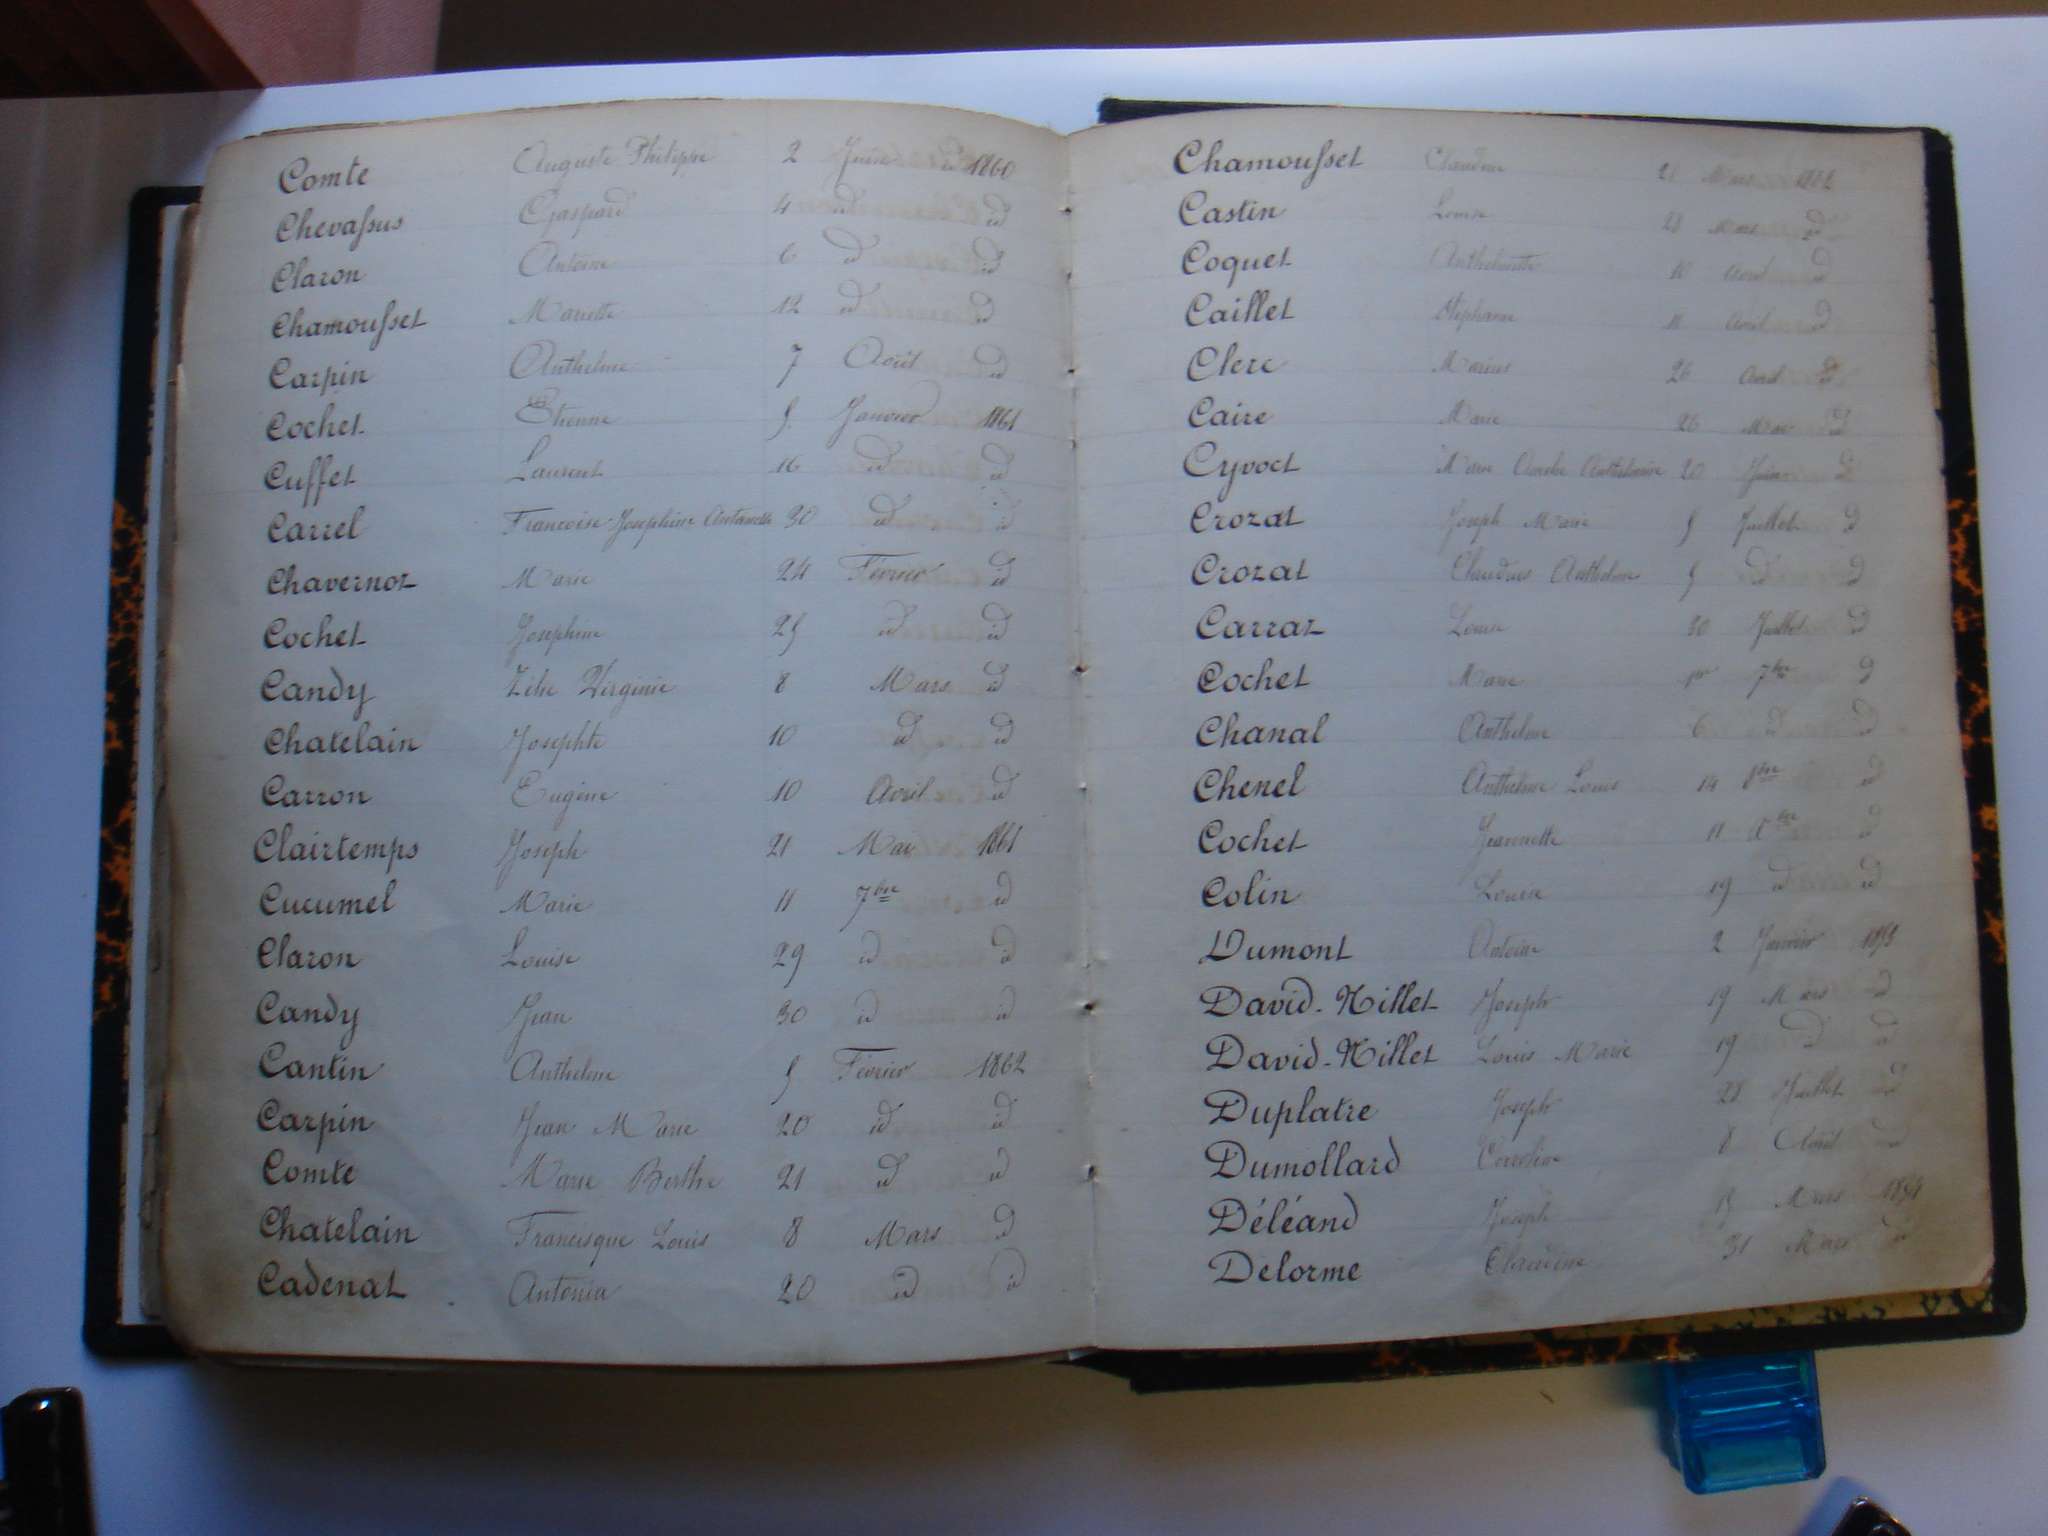 Comte Auguste Philippe 2 Juin 1860
Chevassus Gaspard 4 id id
Claron Antoine 6 id id
Chamousset Mariette 12 id id
Carpin Anthelme 7 Août id
Cochet Etienne 5 Janvier 1861
Cuffet Laurent 16 id id
Carrel Francoise Josephine Antoinette 30 id id
Chavernoz Marie 24 Février id
Cochet Josephine 25 id id
Candy Zélie Virginie 8 Mars id
Chatelain Josephte 10 id id
Carron Eugène 10 Avril id
Clairtemps Joseph 21 Mai 1861
Cucumel Marie 11 7bre id
Claron Louise 29 id id
Candy Jean 30 id id
Cantin Anthelme 5 Février 1862
Carpin Jean Marie 20 id id
Comte Marie Berthe 21 id id
Chatelain Francisque Louis 8 Mars id
Cadenat Antonia 20 id id
Chamousset Claudine 21 Mars 1862
Castin Louise 28 Mars id
Coquet Anthelmette Avril id
Caillet Stéphanie Avril id
Clerc Marius 26 Avril id
Caire Marie 26 Mai id
Cyvoct Marie Anthelmine 20 Juin id
Crozat Joseph Marie 5 Juillet id
Crozat Claudius Anthelme 5 id id
Carraz Louise 30 Juillet id
Cochet Marie 1er 7bre id
Chanal Anthelme 6 id id
Chenel Anthelme Louis 14 8bre id
Cochet Jeannette 11 id
Colin Louise 19 id id
Dumont Antoine 2 Janvier
David-Nillet Joseph 19 Mars id
David-Nillet Louis Marie 19 id id
Duplatre Joseph 28 Juillet id
Dumollard Caroline 8 Août id
Déléand Joseph Mars 1854
Delorme Claudine 31 Mars id